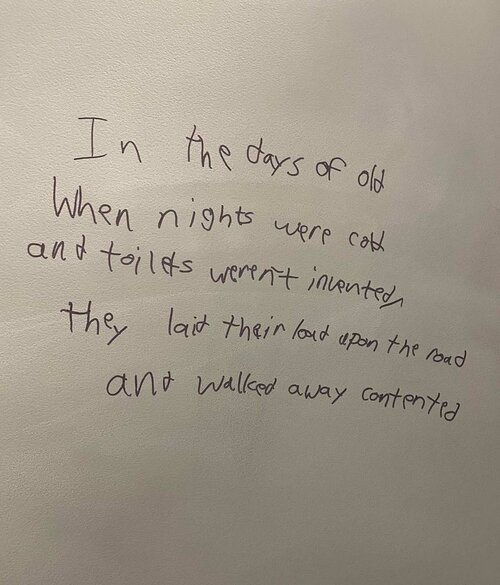 In the days of old
When nights were cold
and toilets weren't invented,
they laid their load upon the road
and walked away contented